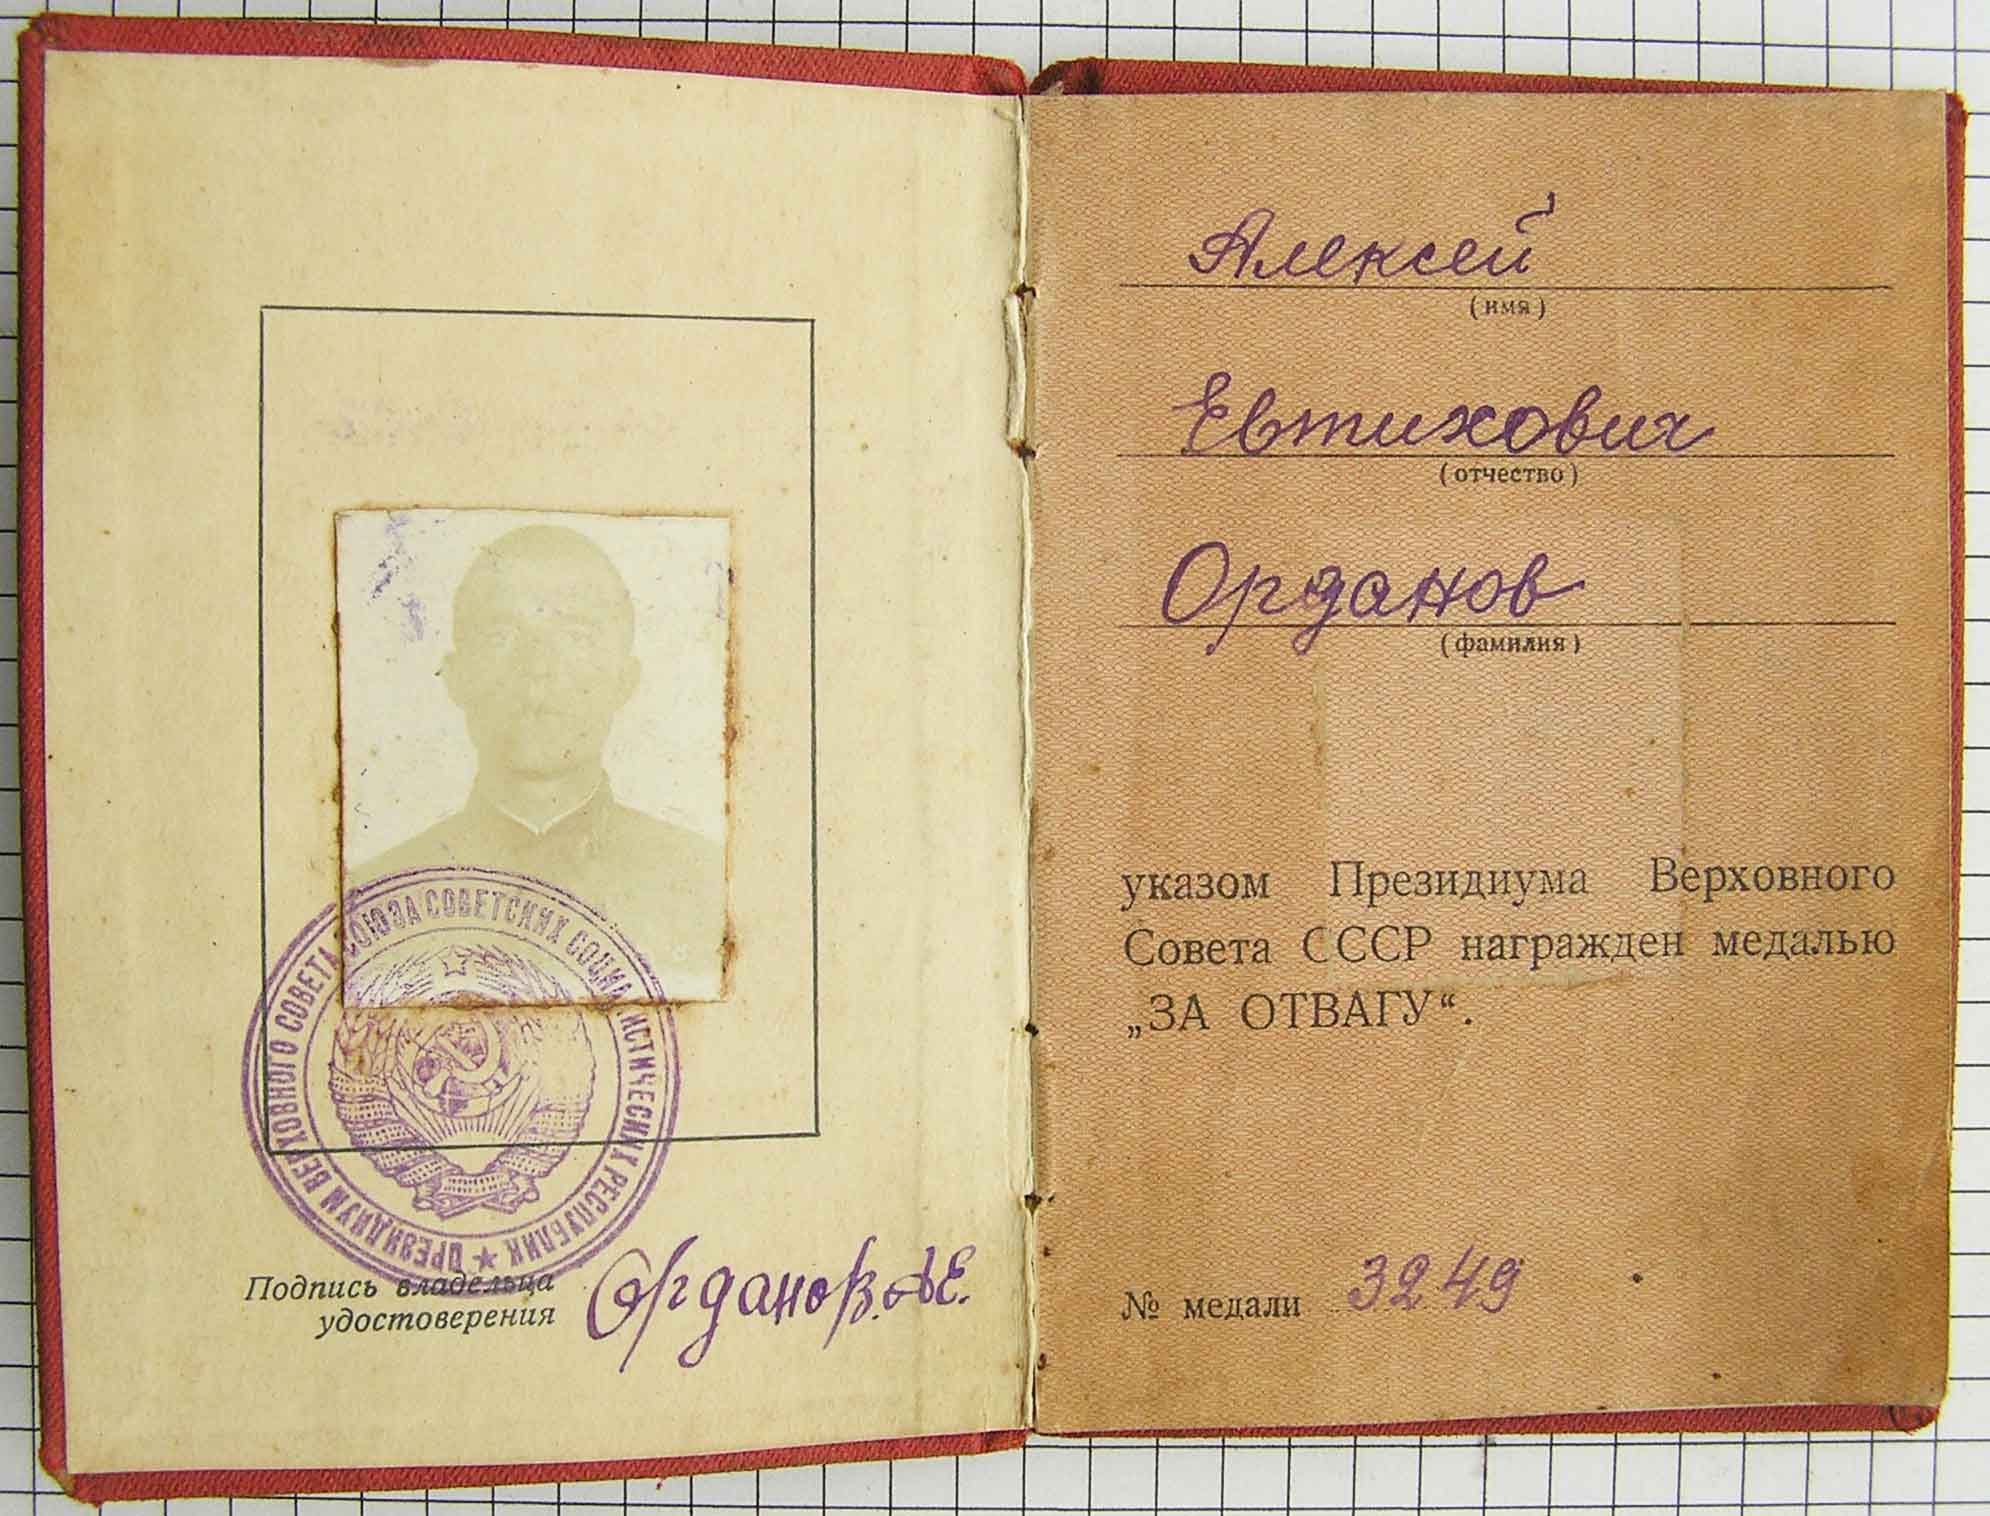 ПРЕЗИДИУМ ВЕРХОВНОГО СОВЕТА СОЮЗА СОВЕТСКИХ СОЦИАЛИСТИЧЕСКИХ РЕСПУБЛИК
Подпись владельца
удостоверения
Орданов.АЕ.
Алексей
(имя)
Евтихович
(отчество)
Орданов
(фамилия)
указом Президиума Верховного
Совета СССР награжден медалью
„ЗА ОТВАГУ“.
№ медали 3249